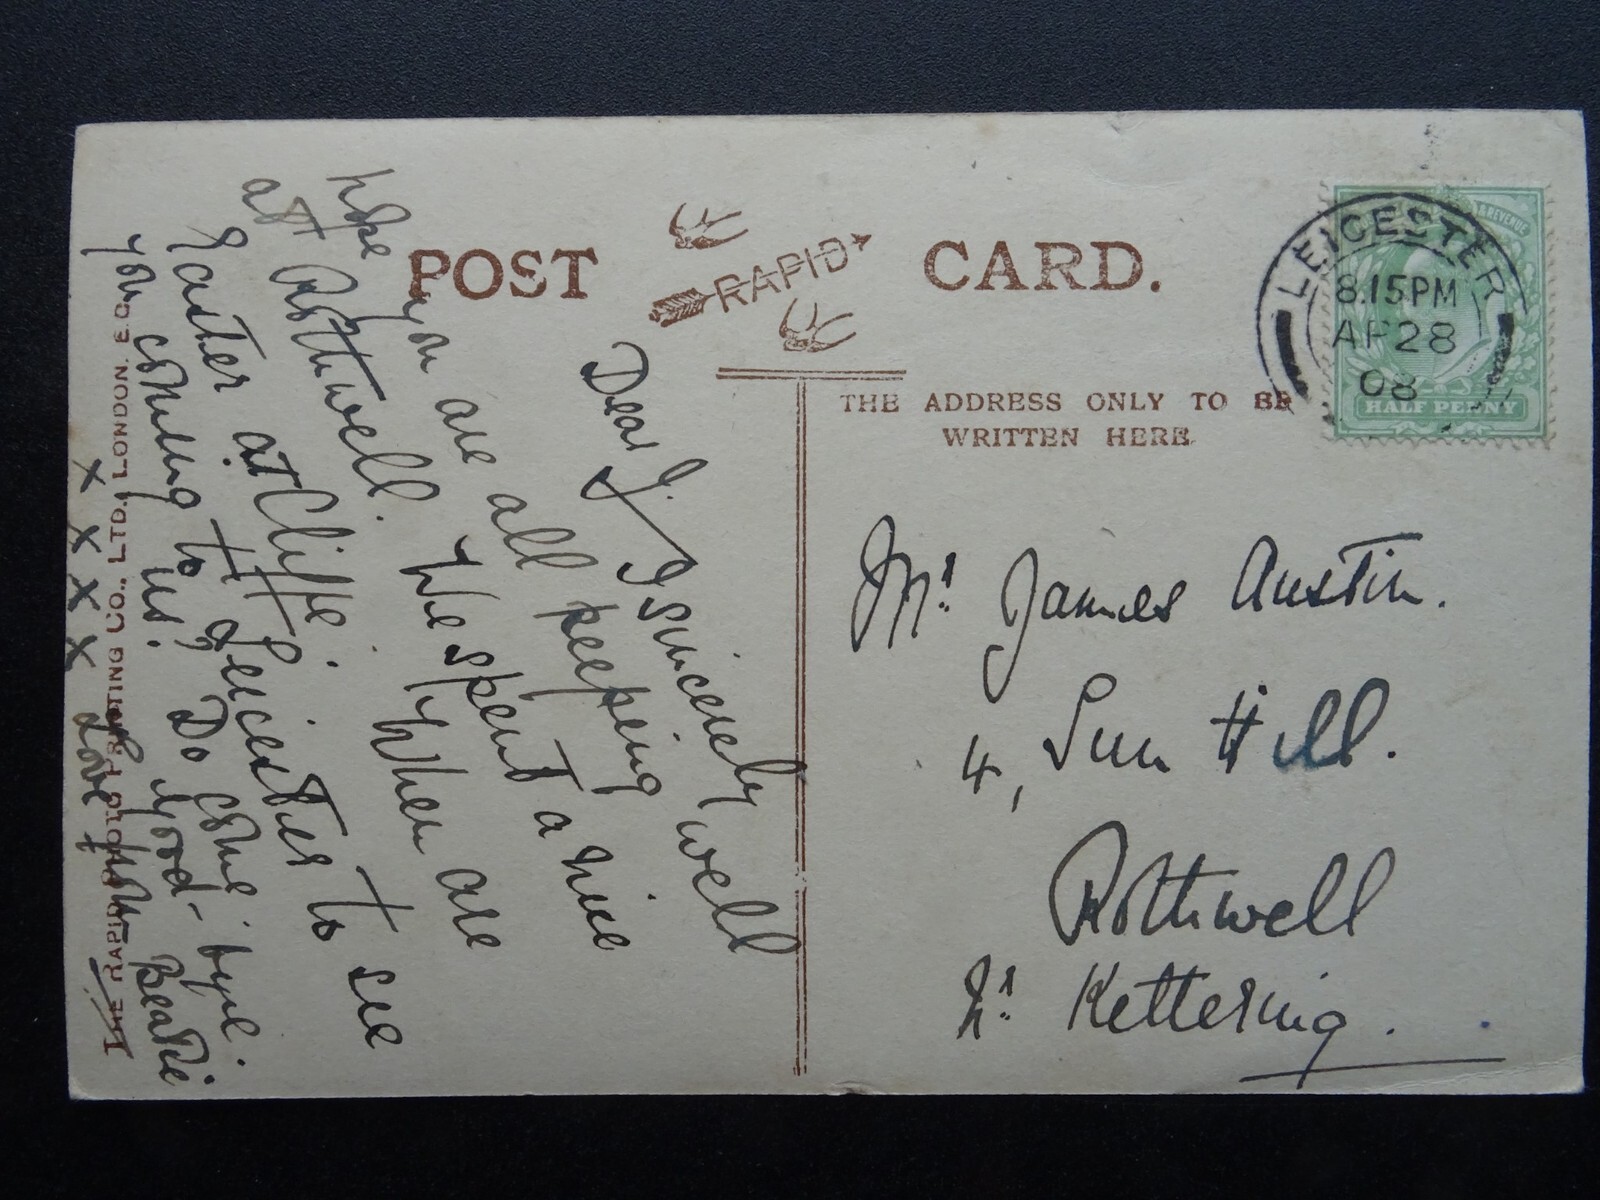 POST CARD.
RAPID
THE ADDRESS ONLY TO BE
WRITTEN HERE.
LEICESTER
8.15PM
AP 28
08
& REVENUE
HALF PENNY
Dear J. I sincerely
hope you are all keeping well
at Rothwell. We spent a nice
Easter at Cliffe. When are
you coming to Leicester to see
us? Do come. Good-bye.
x x x x Love from Beatie
Mr. James Austin.
4, Sun Hill.
Rothwell
Nr. Kettering.
THE RAPID PHOTO PRINTING CO., LTD., LONDON. E.C.